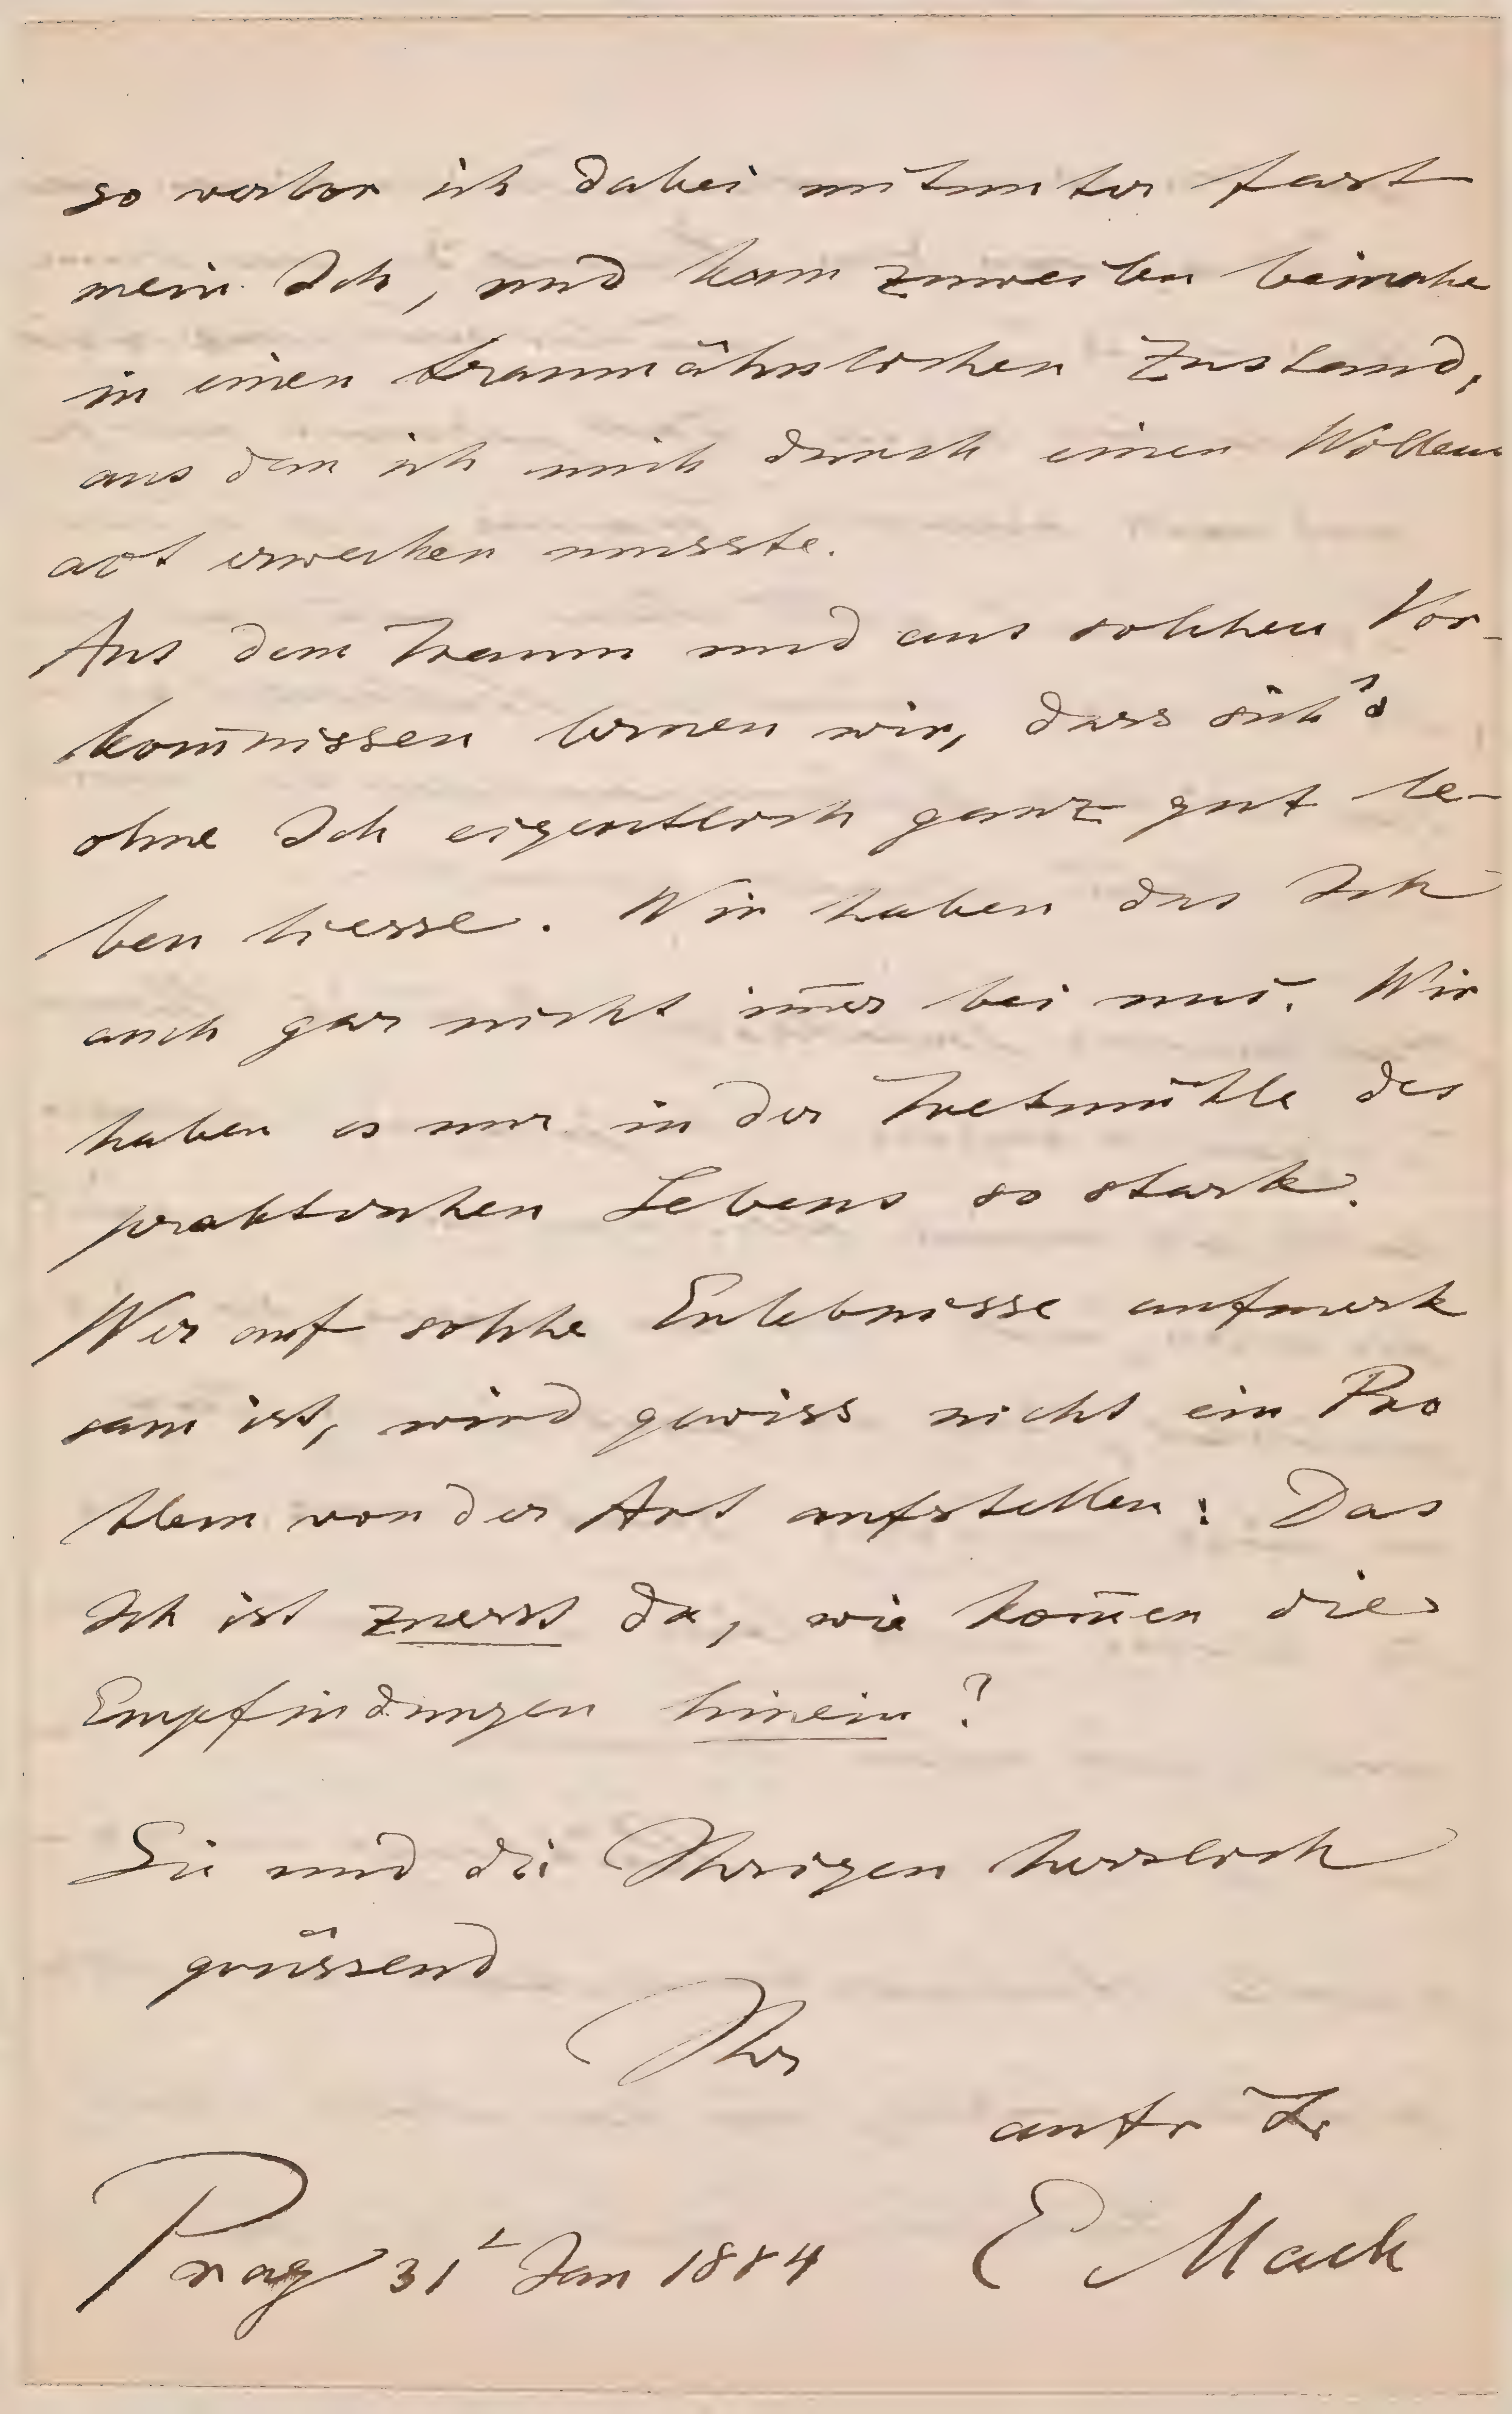 so verlor ich dabei mitunter fast
mein Ich, und kam zuweilen beinahe
in einen traumähnlichen Zustand,
aus dem ich mich durch einen Willens
act erwecken musste.
Aus dem Traum und aus solchen Vor-
kom̄nissen lernen wir, dass sich's
ohne Ich eigentlich ganz gut le-
ben liesse. Wir haben das Ich
auch gar nicht im̄er bei uns. Wir
haben es nur in der Tretmühle des
praktischen Lebens so stark.
Wer auf solche Erlebnisse aufmerk
sam ist, wird gewiss nicht ein Pro
blem von der Art aufstellen: Das
Ich ist zuerst da, wie kom̄en die
Empfindungen hinein?
Sie und die Ihrigen herzlich
grüssend
Ihr
aufr
E Mach
Prag 31 Jan 1884